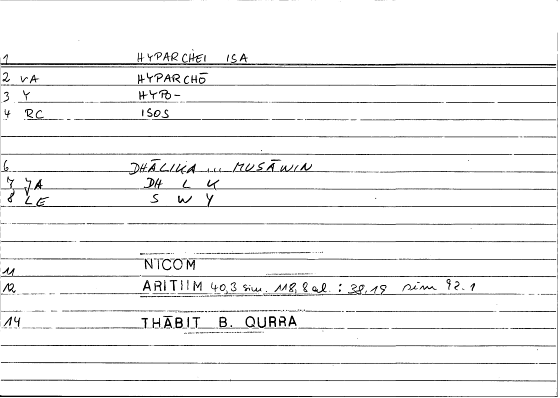 1 HYPARCHEI ISA
2 VA HYPARCHŌ
3 Y HYPO-
4 RC ISOS
6 DHĀLIKA ... MUSĀWIN
7 JA DH L K
8 LE S W Y
11 NICOM
12 ARITHM 40,3 sim. 118,8 al. : 38,19 sim 92.1
14 THĀBIT B. QURRA